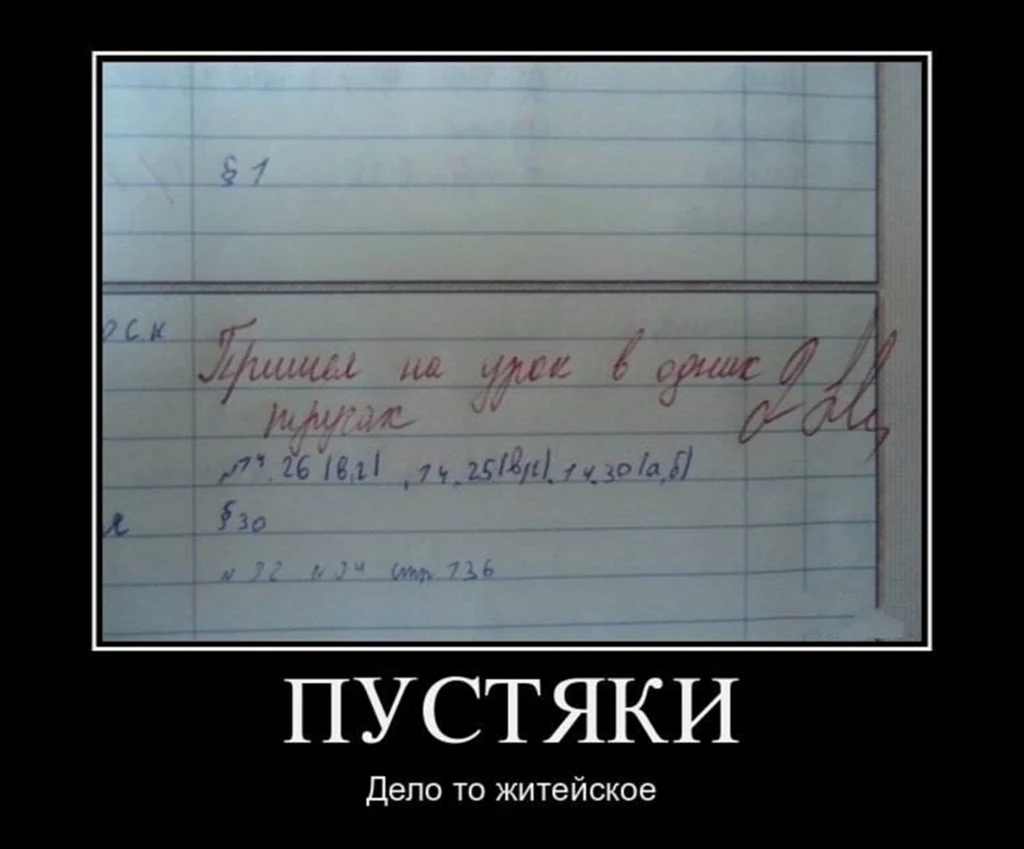 § 1
о с. к
Пришел на урок в одних
трусах
№ 14. 26 (в,г) , 14. 25(в,г). 14. 30(а,б)
§ 30
стр. 136
ПУСТЯКИ
Дело то житейское